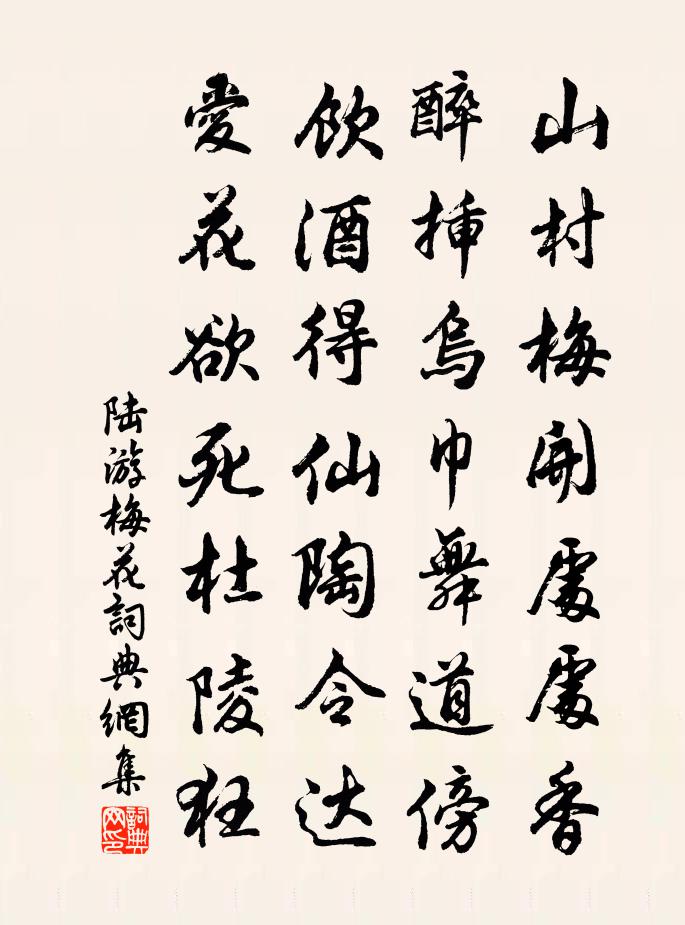 山村梅開處處香
醉挿烏巾舞道傍
飲酒得仙陶令达
愛花欲死杜陵狂
陆游梅花詞典網集
詞典网印